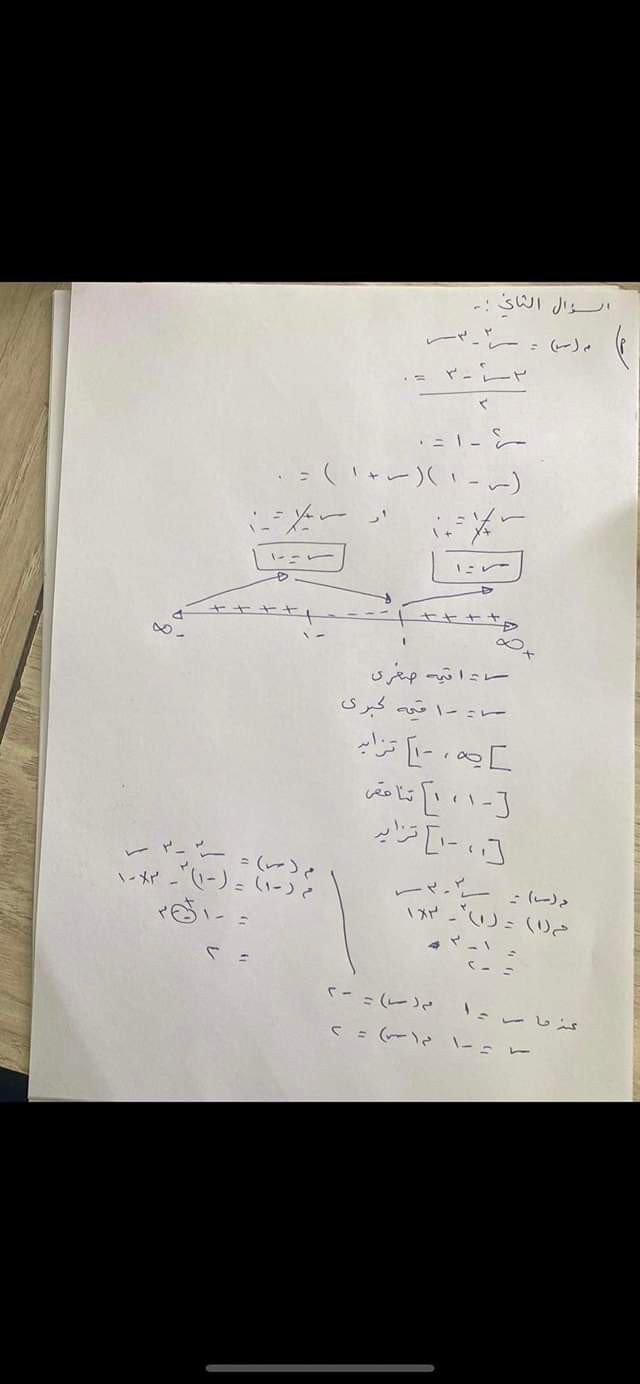 السؤال الثاني :-
م) م(س) = س^٣ - ٣س
٣س^٢ - ٣ = ٠
٣
س^٢ - ١ = ٠
(س - ١)(س + ١) = ٠
س - ١ = ٠ او س + ١ = ٠
+١ +١ -١ -١
س = ١ س = -١
-∞ + + + + -١ - - - - ١ + + + + +∞
س = ١ قيمه صغرى
س = -١ قيمه كبرى
]∞ ، -١] تزايد
[-١ ، ١] تناقص
[١ ، -١] تزايد
م(س) = س^٣ - ٣س
م(١) = (١)^٣ - ٣×١
= ١ - ٣
= -٢
م(س) = س^٣ - ٣س
م(-١) = (-١)^٣ - ٣×-١
= -١ + ٣
= ٢
عندما س = ١ م(س) = -٢
س = -١ م(س) = ٢